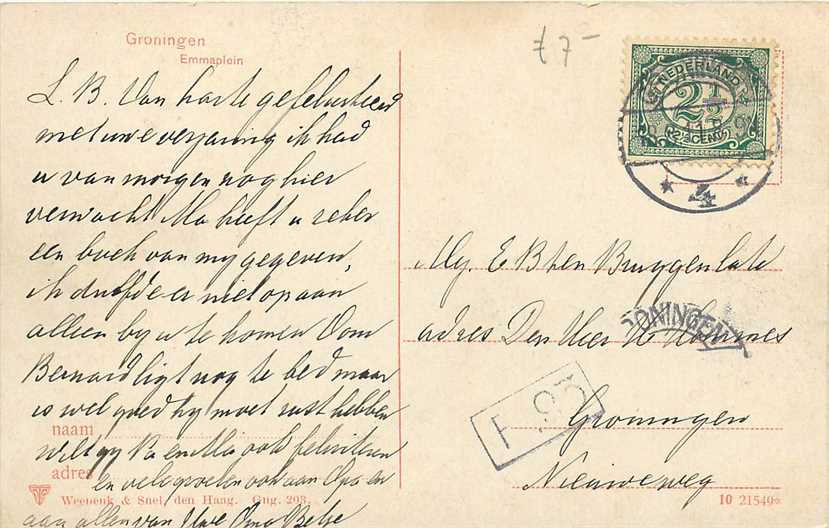 Groningen
Emmaplein
f 7 -
L. B. Van harte gefeliciteerd
met uwe verjaring ik had
u van morgen nog hier
verwacht Ma heeft u zeker
een boek van my gegeven,
ik durfde er niet op aan
alleen by u te komen Oom
Bernard ligt nog te bed maar
is wel goed hy moet rust hebben
naam
wilt gy Pa en Ma ook feliciteren
adres
en vele groeten ook aan Opa en
aan allen van Uwe Oma Betse
Weenenk & Snel, den Haag. Gng. 293.
NEDERLAND
2½
2½ CENT
4
E B ten Bruggen Cate
adres Den Heer
GRONINGEN
F 95
Groningen
Nieuweweg
10 21549